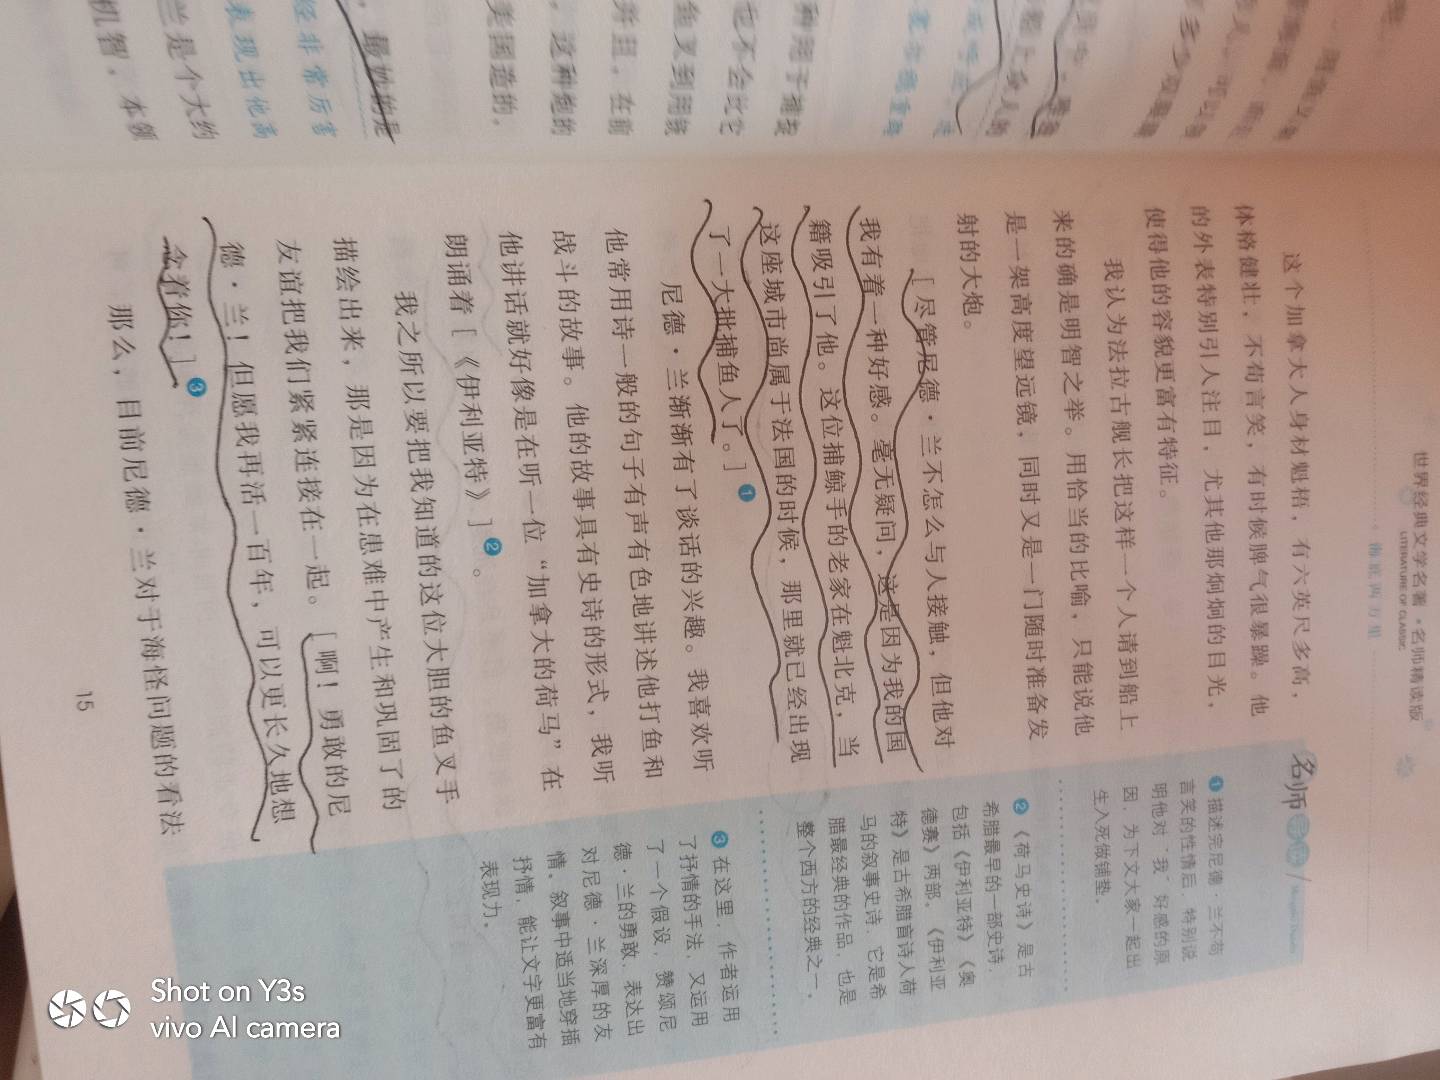 世界经典文学名著·名师精读版
LITERATURE OF CLASSIC
海底两万里
这个加拿大人身材魁梧，有六英尺多高，
体格健壮，不苟言笑，有时候脾气很暴躁。他
的外表特别引人注目，尤其他那炯炯的目光，
使得他的容貌更富有特征。
我认为法拉古舰长把这样一个人请到船上
来的确是明智之举。用恰当的比喻，只能说他
是一架高度望远镜，同时又是一门随时准备发
射的大炮。
［尽管尼德·兰不怎么与人接触，但他对
我有着一种好感。毫无疑问，这是因为我的国
籍吸引了他。这位捕鲸手的老家在魁北克，当
这座城市尚属于法国的时候，那里就已经出现
了一大批捕鱼人了。］❶
尼德·兰渐渐有了谈话的兴趣。我喜欢听
他常用诗一般的句子有声有色地讲述他打鱼和
战斗的故事。他的故事具有史诗的形式，我听
他讲话就好像是在听一位“加拿大的荷马”在
朗诵着［《伊利亚特》］❷。
我之所以要把我知道的这位大胆的鱼叉手
描绘出来，那是因为在患难中产生和巩固了的
友谊把我们紧紧连接在一起。［啊！勇敢的尼
德·兰！但愿我再活一百年，可以更长久地想
念着你！］❸
那么，目前尼德·兰对于海怪问题的看法
名师
❶描述完尼德·兰不苟
言笑的性情后，特别说
明他对“我”好感的原
因，为下文大家一起出
生入死做铺垫。
❷《荷马史诗》是古
希腊最早的一部史诗，
包括《伊利亚特》《奥
德赛》两部。《伊利亚
特》是古希腊盲诗人荷
马的叙事史诗，它是希
腊最经典的作品，也是
整个西方的经典之一。
❸在这里，作者运用
了抒情的手法，又运用
了一个假设，赞颂尼
德·兰的勇敢，表达出
对尼德·兰深厚的友
情。叙事中适当地穿插
抒情，能让文字更富有
表现力。
15
种用于捕鲸
也不会比它
鱼叉到用锐
并且，在前
，这种炮的
美国造的，
，最妙的是
经非常厉害
表现出他高
兰是个大约
机智，本领
Shot on Y3s
vivo AI camera